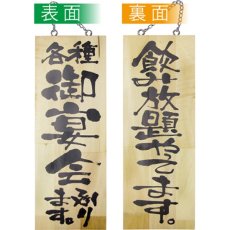 表面
各種
御宴会
承ります。
裏面
飲み放題やってます。